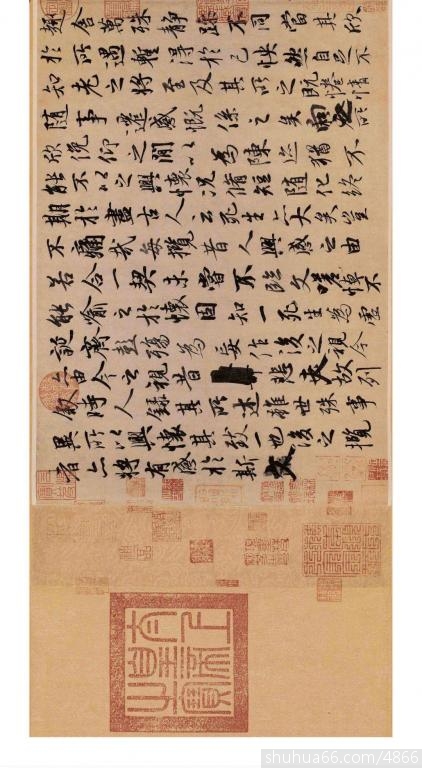 趣舍萬殊靜躁不同當其欣
於所遇蹔得於己怏然自足不
知老之將至及其所之既惓情
隨事遷感慨係之矣向之所
欣俛仰之間以為陳迹猶不
能不以之興懷況脩短隨化終
期於盡古人云死生亦大矣豈
不痛哉每攬昔人興感之由
若合一契未嘗不臨文嗟悼不
能喻之於懷固知一死生為虛
誕齊彭殤為妄作後之視今
亦由今之視昔悲夫故列
敘時人錄其所述雖世殊事
異所以興懷其致一也後之攬
者亦將有感於斯文
太上皇帝之寶
shuhua66.com/4866